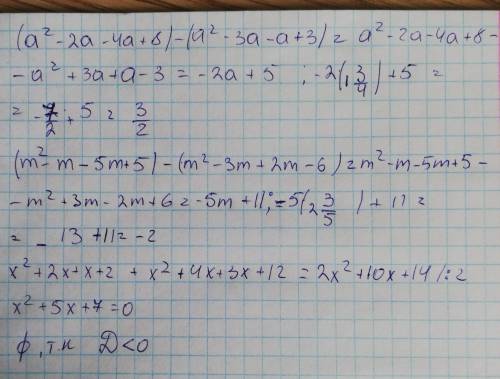 (a² - 2a - 4a + 8) - (a² - 3a - a + 3) = a² - 2a - 4a + 8 -
- a² + 3a + a - 3 = -2a + 5 ; -2(1 3/4) + 5 =
= -7/2 + 5 = 3/2
(m² - m - 5m + 5) - (m² - 3m + 2m - 6) = m² - m - 5m + 5 -
- m² + 3m - 2m + 6 = -5m + 11; = -5(2 3/5) + 11 =
= - 13 + 11 = -2
x² + 2x + x + 2 + x² + 4x + 3x + 12 = 2x² + 10x + 14 /:2
x² + 5x + 7 = 0
∅, т.к D < 0